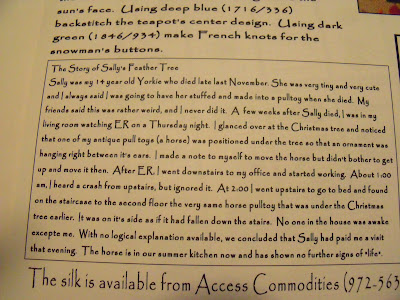 sun's face. Using deep blue (1716/336)
backstitch the teapot's center design. Using dark
green (1846/934) make French knots for the
snowman's buttons.
The Story of Sally's Feather Tree
Sally was my 14 year old Yorkie who died late last November. She was very tiny and very cute
and I always said I was going to have her stuffed and made into a pulltoy when she died. My
friends said this was rather weird, and I never did it. A few weeks after Sally died, I was in my
living room watching ER on a Thursday night. I glanced over at the Christmas tree and noticed
that one of my antique pull toys (a horse) was positioned under the tree so that an ornament was
hanging right between it's ears. I made a note to myself to move the horse but didn't bother to get
up and move it then. After ER, I went downstairs to my office and started working. About 1:00
am, I heard a crash from upstairs, but ignored it. At 2:00 I went upstairs to go to bed and found
on the staircase to the second floor the very same horse pulltoy that was under the Christmas
tree earlier. It was on it's side as if it had fallen down the stairs. No one in the house was awake
excepte me. With no logical explanation available, we concluded that Sally had paid me a visit
that evening. The horse is in our summer kitchen now and has shown no further signs of "life".
The silk is available from Access Commodities (972-563